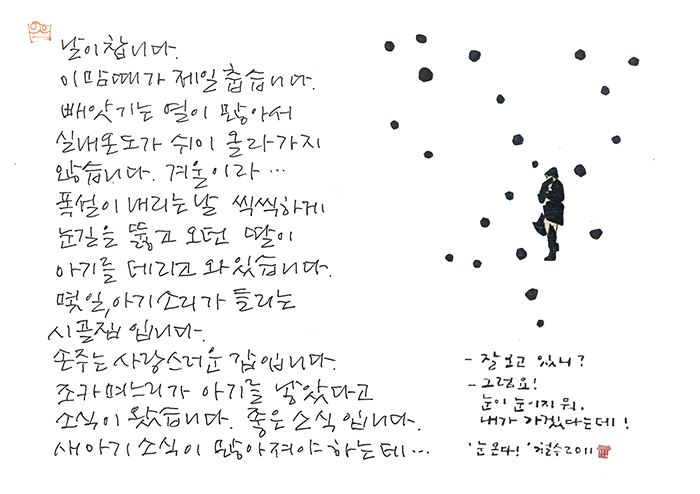 날이 찹니다.
이맘때가 제일 춥습니다.
빼앗기는 열이 많아서
실내온도가 쉬이 올라가지
않습니다. 겨울이라…
폭설이 내리는 날 씩씩하게
눈길을 뚫고 오던 딸이
아기를 데리고 와 있습니다.
몇일, 아기소리가 들리는
시골집입니다.
손주는 사랑스러운 갑입니다.
조카며느리가 아기를 낳았다고
소식이 왔습니다. 좋은 소식입니다.
새 아기 소식이 많아져야 하는데…
- 잘 보고 있니?
- 그럼요!
눈이 눈이지 뭐.
내가 가겠다는데!
'눈 온다!' 철수 2011